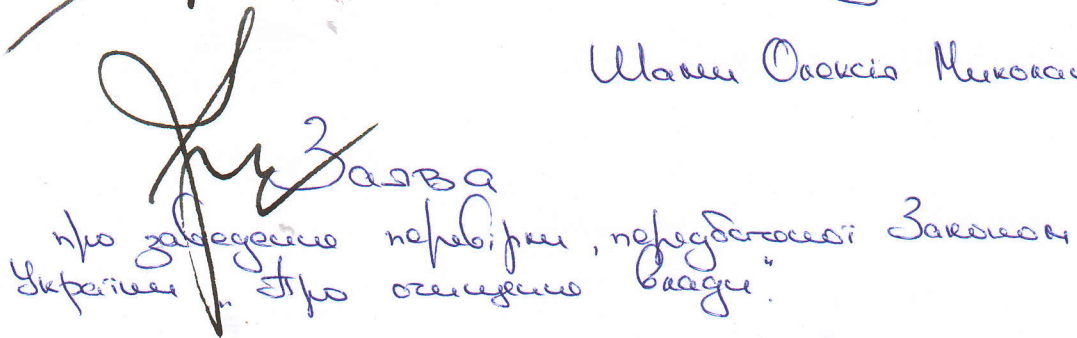 Шами Олексія Микола
Заява
про заведення перевірки, передбаченої Законом
України „Про очищення влади".